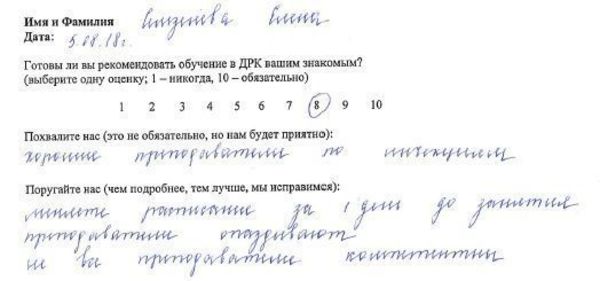 Имя и Фамилия Елена
Дата: 5.08.18г.
Готовы ли вы рекомендовать обучение в ДРК вашим знакомым?
(выберите одну оценку; 1 – никогда, 10 – обязательно)
1 2 3 4 5 6 7 8 9 10
Похвалите нас (это не обязательно, но нам будет приятно):
хорошие преподаватели по инъекциям
Поругайте нас (чем подробнее, тем лучше, мы исправимся):
меняете расписание за 1 день до занятия
преподаватели опаздывают
не все преподаватели компетентны